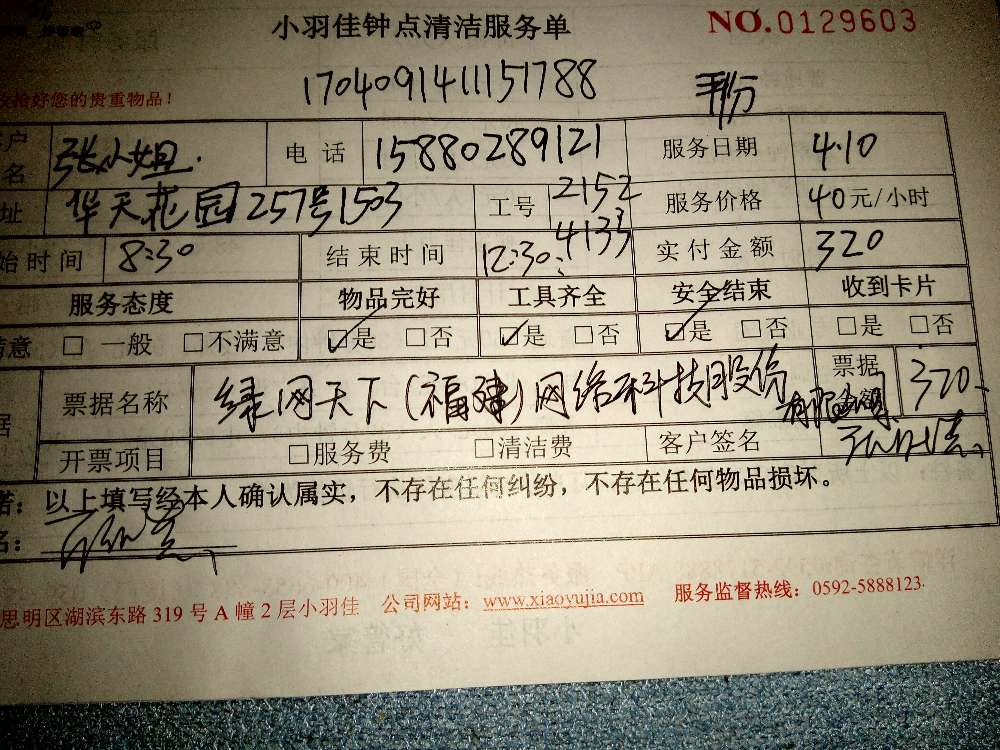 小羽佳钟点清洁服务单 NO.0129603
1704091411151788
收拾好您的贵重物品!
客户 张小姐. 电话 15880289121 服务日期 4.10
名
址 华天花园257号1503 工号 2152 服务价格 40元/小时
4133
始时间 8:30 结束时间 12:30 实付金额 320
服务态度 物品完好 工具齐全 安全结束 收到卡片
满意 □ 一般 □不满意 ☑是 □否 ☑是 □否 ☑是 □否 □是 □否
据 票据名称 绿网天下(福建)网络科技股份有限公司 票据金额 320
开票项目 □服务费 □清洁费 客户签名
诺:以上填写经本人确认属实,不存在任何纠纷,不存在任何物品损坏。
名:
思明区湖滨东路319号A幢2层小羽佳 公司网站:www.xiaoyujia.com 服务监督热线:0592-5888123